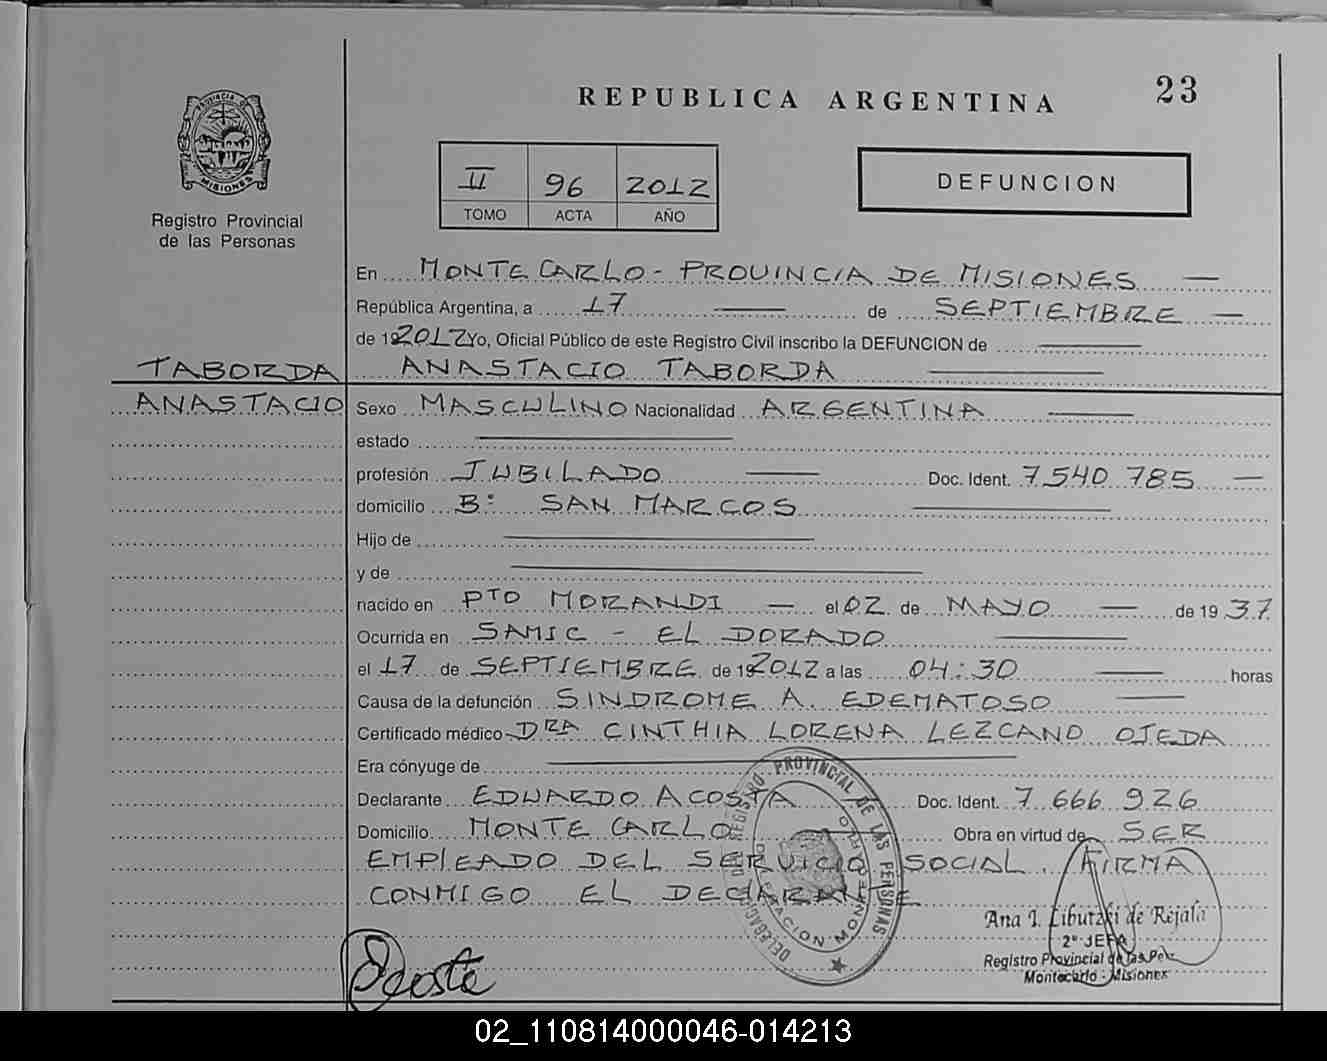 23
REPUBLICA ARGENTINA
PROVINCIA DE
MISIONES
Registro Provincial
de las Personas
II 96 2012
TOMO ACTA AÑO
DEFUNCION
En MONTE CARLO - PROVINCIA DE MISIONES —
República Argentina, a 17 — de SEPTIEMBRE —
de 192012 Yo, Oficial Público de este Registro Civil inscribo la DEFUNCION de —
TABORDA ANASTACIO TABORDA —
ANASTACIO Sexo MASCULINO Nacionalidad ARGENTINA —
estado —
profesión JUBILADO — Doc. Ident. 7.540.785 —
domicilio B: SAN MARCOS —
Hijo de —
y de —
nacido en PTO MORANDI — el 02 de MAYO — de 19 37.
Ocurrida en SAMIC - EL DORADO —
el 17 de SEPTIEMBRE de 192012 a las 04:30 — horas
Causa de la defunción SINDROME A. EDEMATOSO —
Certificado médico DRA CINTHIA LORENA LEZCANO OJEDA
Era cónyuge de —
Declarante EDUARDO ACOSTA — Doc. Ident. 7.666.926
Domicilio MONTE CARLO — Obra en virtud de SER
EMPLEADO DEL SERVICIO SOCIAL. FIRMA
CONMIGO EL DECLARANTE
PROVINCIAL DE LAS PERSONAS
Ana I. Libutzki de Rejala
2ª JEFA
Registro Provincial de las Per.
Montecarlo - Misiones
Acosta
02_110814000046-014213